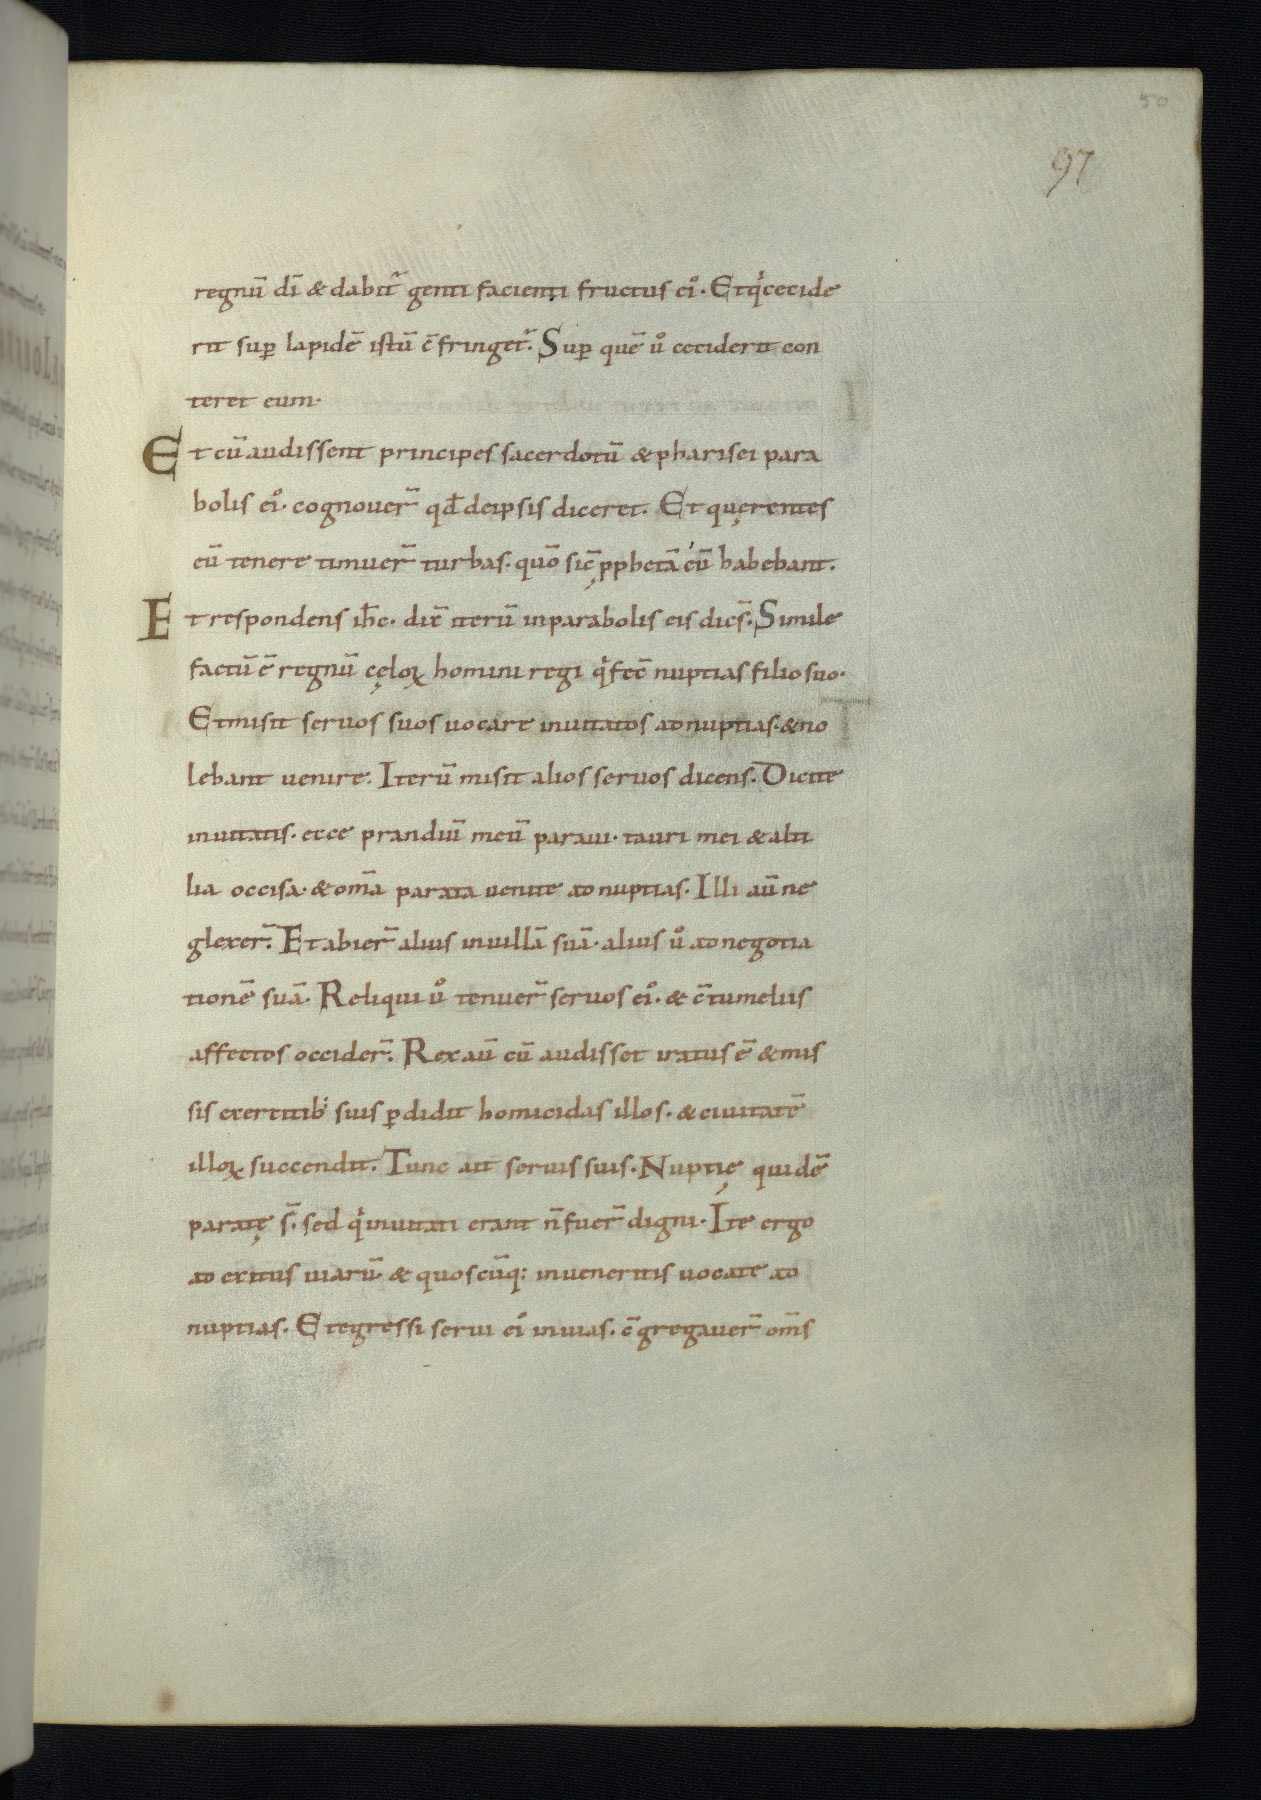 50
97
regnū dī & dabit᷑ genti facienti fructus ei᷒. Et qͥ cecide
rit suꝑ lapidē istū c̄fringet᷑. Suꝑ quē u᷒ ceciderit con
teret eum.
Et cū audissent principes sacerdotū & pharisei para
bolis ei᷒. cognouer̄ qđ de ipsis diceret. Et quęrentes
eū tenere timuer̄ turbas. quō sic̄ ꝓphetā eū habebant.
Et respondens ihc. dix̄ iterū in parabolis eis dic̄s. Simile
factū ē regnū cęloꝝ homini regi qͥ fec̄ nuptias filio suo.
Et misit seruos suos uocare inuitatos ad nuptias. & no
lebant uenire. Iterū misit alios seruos dicens. Dicite
inuitatis. ecce prandiū meū paraui. tauri mei & alti
lia occisa. & om̄a parata uenite ad nuptias. Illi aū ne
glexer̄. Et abier̄ alius in uillā suā. alius u᷒ ad negotia
tionē suā. Reliqui u᷒ tenuer̄ seruos ei᷒. & c̄tumeliis
affectos occider̄. Rex aū cū audisset iratus ē & mis
sis exercitib; suis ꝑdidit homicidas illos. & ciuitatē
illoꝝ succendit. Tunc ait seruis suis. Nuptię quidē
paratę s̄. sed qͥ inuitati erant n̄ fuer̄ digni. Ite ergo
ad exitus uiarū & quoscūq; inueneritis uocate ad
nuptias. Et egressi serui ei᷒ in uias. c̄gregauer̄ om̄s